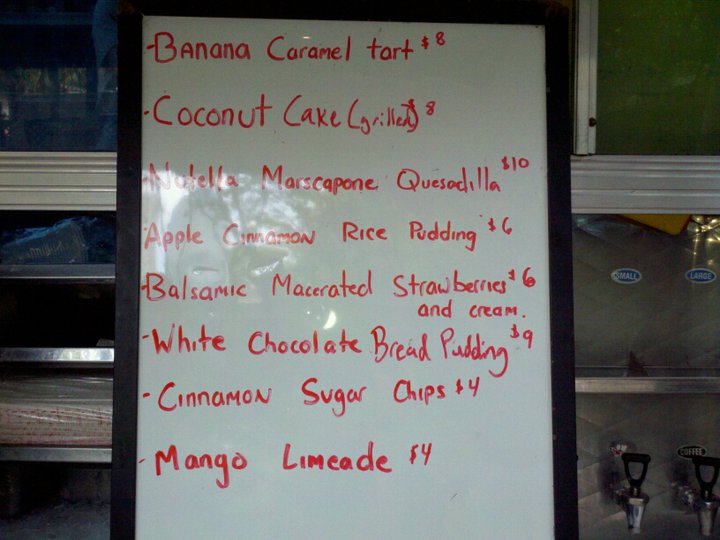 -Banana Caramel tart $8
-Coconut Cake (grilled) $8
-Nutella Marscapone Quesadilla $10
-Apple Cinnamon Rice Pudding $6
-Balsamic Macerated Strawberries $6
and cream.
-White Chocolate Bread Pudding $9
-Cinnamon Sugar Chips $4
-Mango Limeade $4
SMALL
LARGE
COFFEE